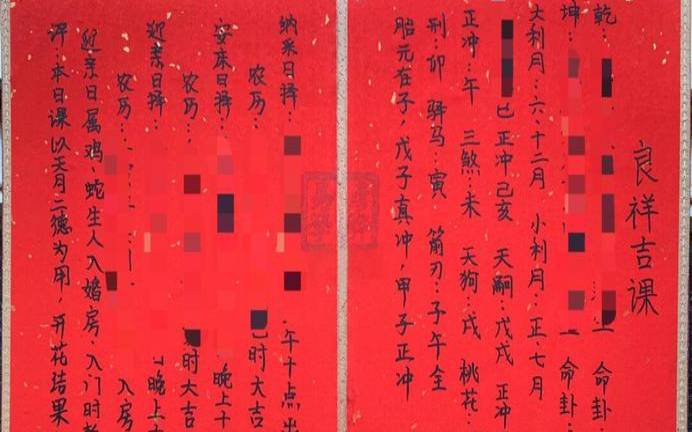 良祥吉课
乾： 命卦：
坤： 一 命卦：
大利月：六、十二月 小利月：正、七月
巳 正冲己亥 天嗣：戊戌 正冲
正冲：午 三煞：未 天狗：戌 桃花：
刑：卯 驿马：寅 箭刃：子午全
胎元在子，戊子真冲，甲子正冲
纳采日择： 午十点出
农历： 时大吉
安床日择： 晚上十
农历： 时大吉
迎亲日择： 晚上
农历： 入房
迎亲日属鸡、蛇生人入婚房、入门时
评：本日课以天月二德为用，开花结果